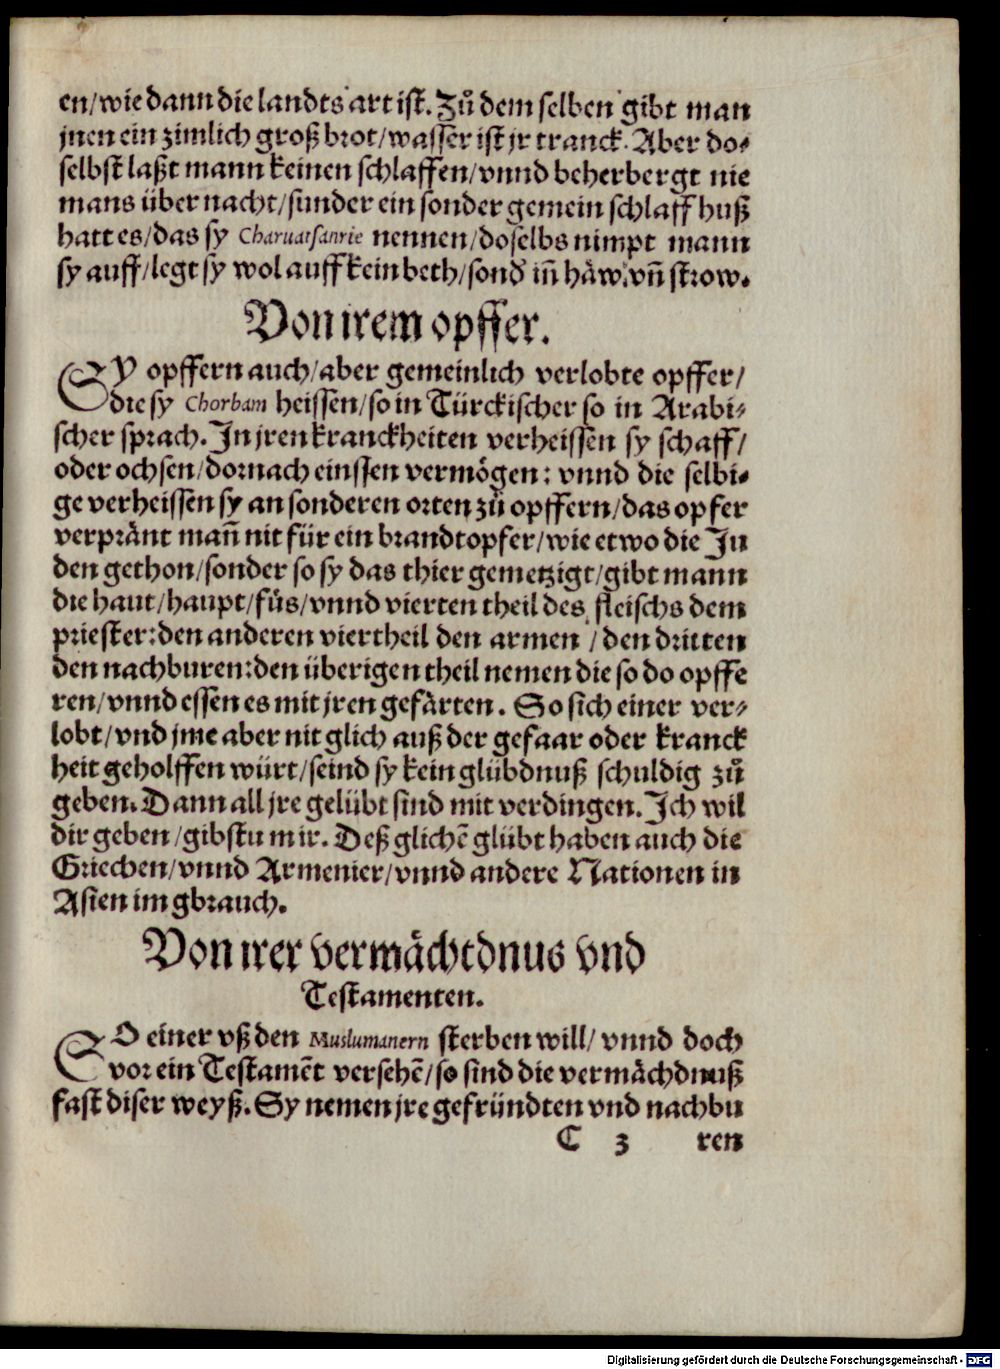 en/wie dann die landts art ist. Zů dem selben gibt man
jnen ein zimlich groß brot/wasser ist jr tranck. Aber do⸗
selbst laßt mann keinen schlaffen/vnnd beherbergt nie
mans über nacht/sunder ein sonder gemein schlaff huß
hatt es/das sy Charuatsanrie nennen/doselbs nimpt mann
sy auff/legt sy wol auff kein beth/sond̓ in̄ häw, vn̄ strow.
Von irem opffer.
SY opffern auch/aber gemeinlich verlobte opffer/
die sy Chorbam heissen/so in Türckischer so in Arabi⸗
scher sprach. In jren kranckheiten verheissen sy schaff/
oder ochsen/dornach einssen vermögen: vnnd die selbi⸗
ge verheissen sy an sonderen orten zů opffern/das opfer
verpränt man̄ nit für ein brandtopfer/wie etwo die Ju
den gethon/sonder so sy das thier gemetzigt/gibt mann
die haut/haupt/füs/vnnd vierten theil des fleischs dem
priester: den anderen viertheil den armen/den dritten
den nachburen: den überigen theil nemen die so do opffe
ren/vnnd essen es mit jren gefärten. So sich einer ver⸗
lobt/vnd jme aber nit glich auß der gefaar oder kranck
heit geholffen würt/seind sy kein glübdnuß schuldig zů
geben. Dann all jre gelübt sind mit verdingen. Ich wil
dir geben/gibstu mir. Deß glichē glübt haben auch die
Griechen/vnnd Armenier/vnnd andere Nationen in
Asien im gbrauch.
Von irer vermächtdnus vnd
Testamenten.
SO einer vß den Muslumanern sterben will/vnnd doch
vor ein Testamēt versehē/so sind die vermächdnuß
fast diser weyß. Sy nemen jre gefründten vnd nachbu
C 3 ren
Digitalisierung gefördert durch die Deutsche Forschungsgemeinschaft - DFG